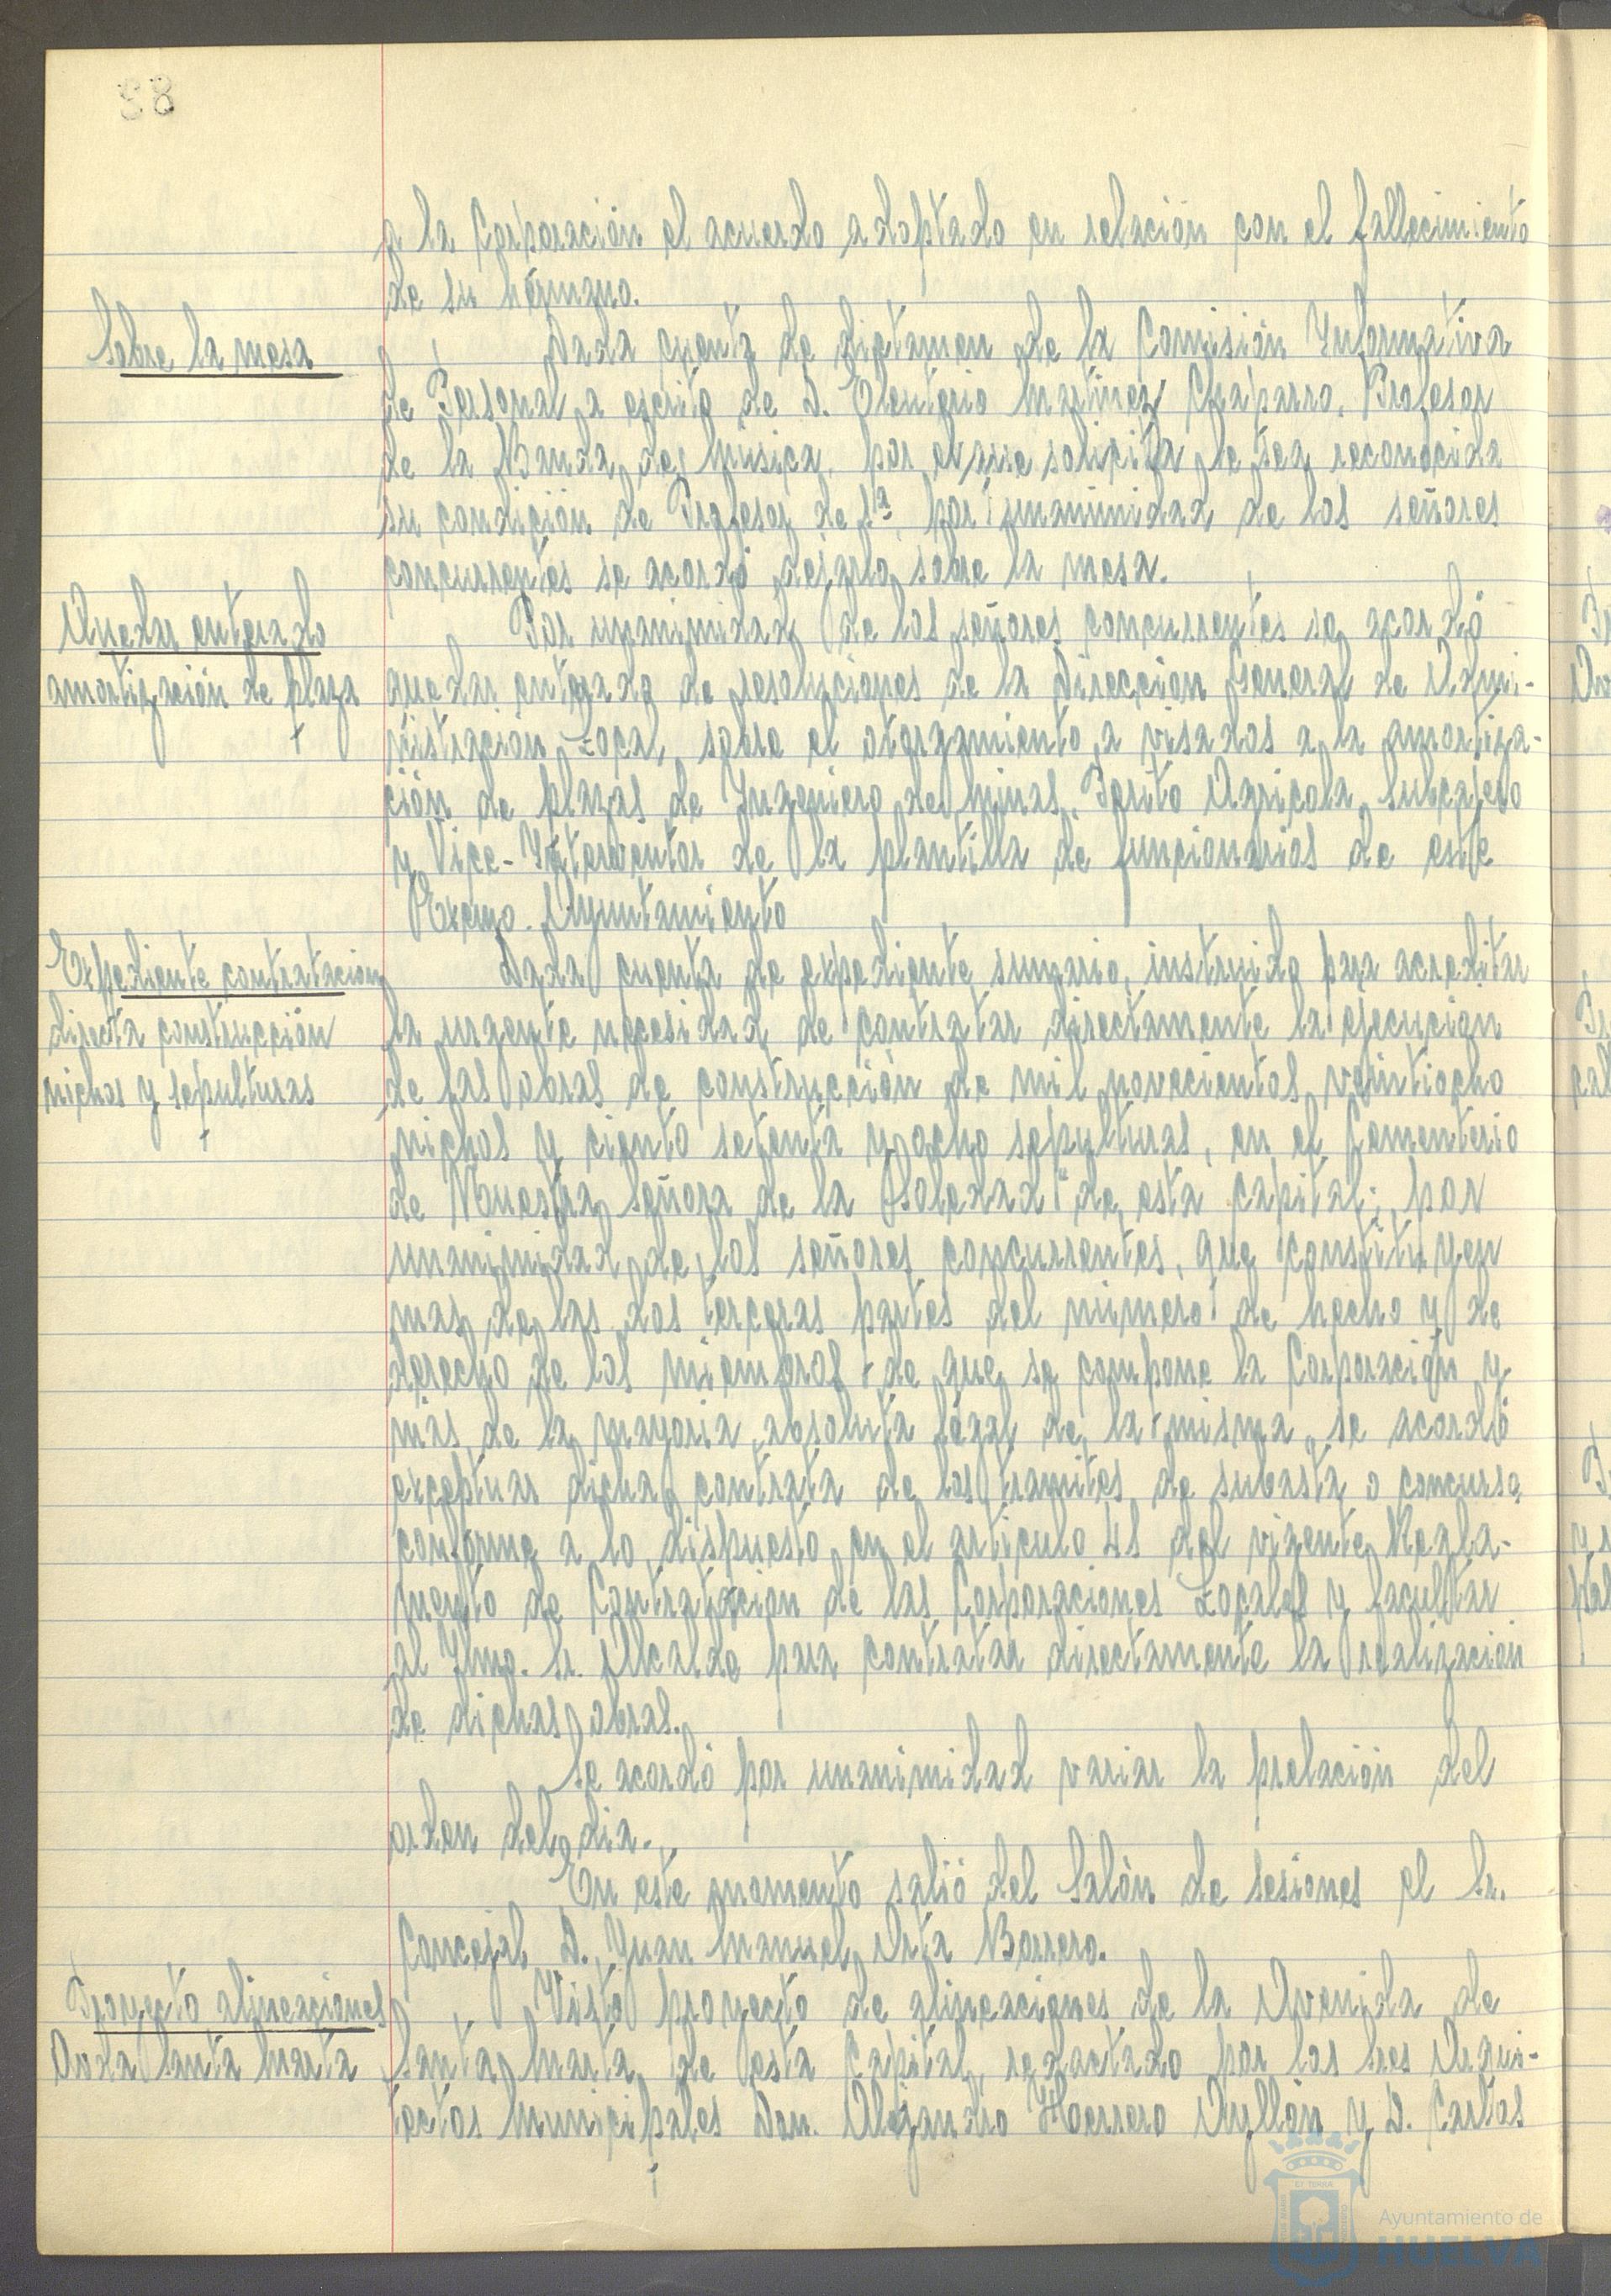 88
a la Corporación el acuerdo adoptado en relación con el fallecimiento
de su hermano.
Sobre la mesa
Dada cuenta de dictamen de la Comisión Informativa
de Personal a escrito de D. Eleuterio Martinez Chaparro, Profesor
de la Banda de Música, por el que solicita le sea reconocida
su condición de Profesor de 1ª, por unanimidad de los señores
concurrentes se acordó dejarlo sobre la mesa.
Quedar enterado
amortización de plaza
Por unanimidad de los señores concurrentes se acordó
quedar enterado de resoluciones de la Dirección General de Admi-
nistración Local, sobre el otorgamiento a visados a la amortiza-
ción de plazas de Ingeniero de Minas, Perito Agricola, Subcajero
y Vice-Interventor de la plantilla de funcionarios de este
Excmo. Ayuntamiento
Expediente contratacion
directa construcción
nichos y sepulturas
Dada cuenta de expediente sumario, instruido para acreditar
la urgente necesidad de contratar directamente la ejecucion
de las obras de construcción de mil novecientos veintiocho
nichos y ciento setenta y ocho sepulturas, en el Cementerio
de Nuestra Señora de la Soledad de esta capital; por
unanimidad de los señores concurrentes, que constituyen
mas de las dos terceras partes del número de hecho y de
derecho de los miembros de que se compone la Corporación y
más de la mayoria absoluta legal de la misma, se acordó
exceptuar dicha contrata de los tramites de subasta o concurso
conforme a lo dispuesto en el articulo 41 del vigente Regla-
mento de Contratación de las Corporaciones Locales y facultar
al Ilmo. Sr. Alcalde para contratar directamente la realización
de dichas obras.
Se acordó por unanimidad variar la prelación del
orden del dia.
En este momento salió del Salón de Sesiones el Sr.
Concejal D. Juan Manuel Orta Borrero.
Proyecto alineaciones
Avda Santa Marta
Visto proyecto de alineaciones de la Avenida de
Santa Marta de esta Capital, redactado por los Sres Arqui-
tectos Municipales Don. Alejandro Herrero Ayllón y D. Carlos
Ayuntamiento de
HUELVA